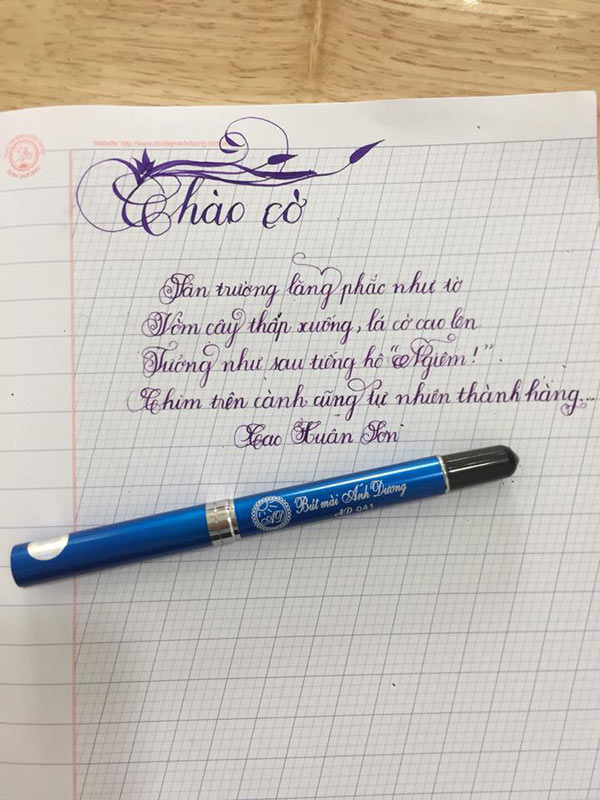 Website: http://www.chudep-anhduong.com
Chào cờ
Sân trường lặng phắc như tờ
Vòm cây thấp xuống, lá cờ cao lên
Tưởng như sau tiếng hô "Nghiêm!".
Chim trên cành cũng tự nhiên thành hàng...
Cao Xuân Sơn
Bút mài Ánh Dương
AD
AD 041